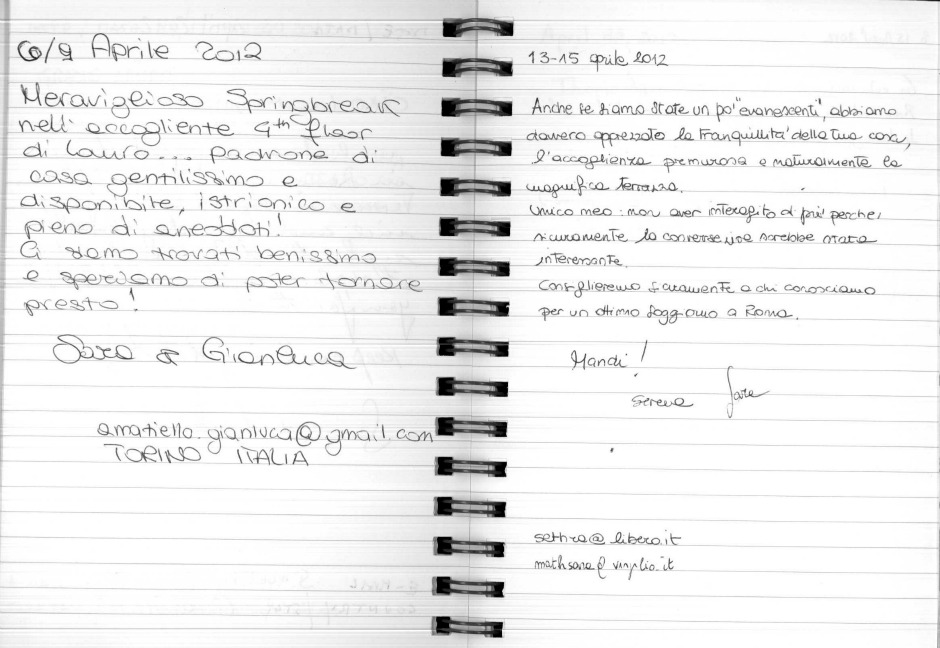 6/9 Aprile 2012
Meraviglioso Springbreak
nell'accogliente 4th floor
di Lauro... padrone di
casa gentilissimo e
disponibile, istrionico e
pieno di aneddoti!
Ci siamo trovati benissimo
e speriamo di poter tornare
presto!
Sara & Gianluca
amatiello.gianluca@gmail.com
TORINO ITALIA
13-15 aprile 2012
Anche se siamo state un po' "evanescenti", abbiamo
davvero apprezzato la tranquillità della tua casa,
l'accoglienza premurosa e naturalmente la
magnifica terrazza.
Unico neo: non aver interagito di più perché,
sicuramente la conversazione sarebbe stata
interessante.
Consiglieremo sicuramente a chi conosciamo
per un ottimo soggiorno a Roma.
Mandi!
Serena Sara
@libero.it